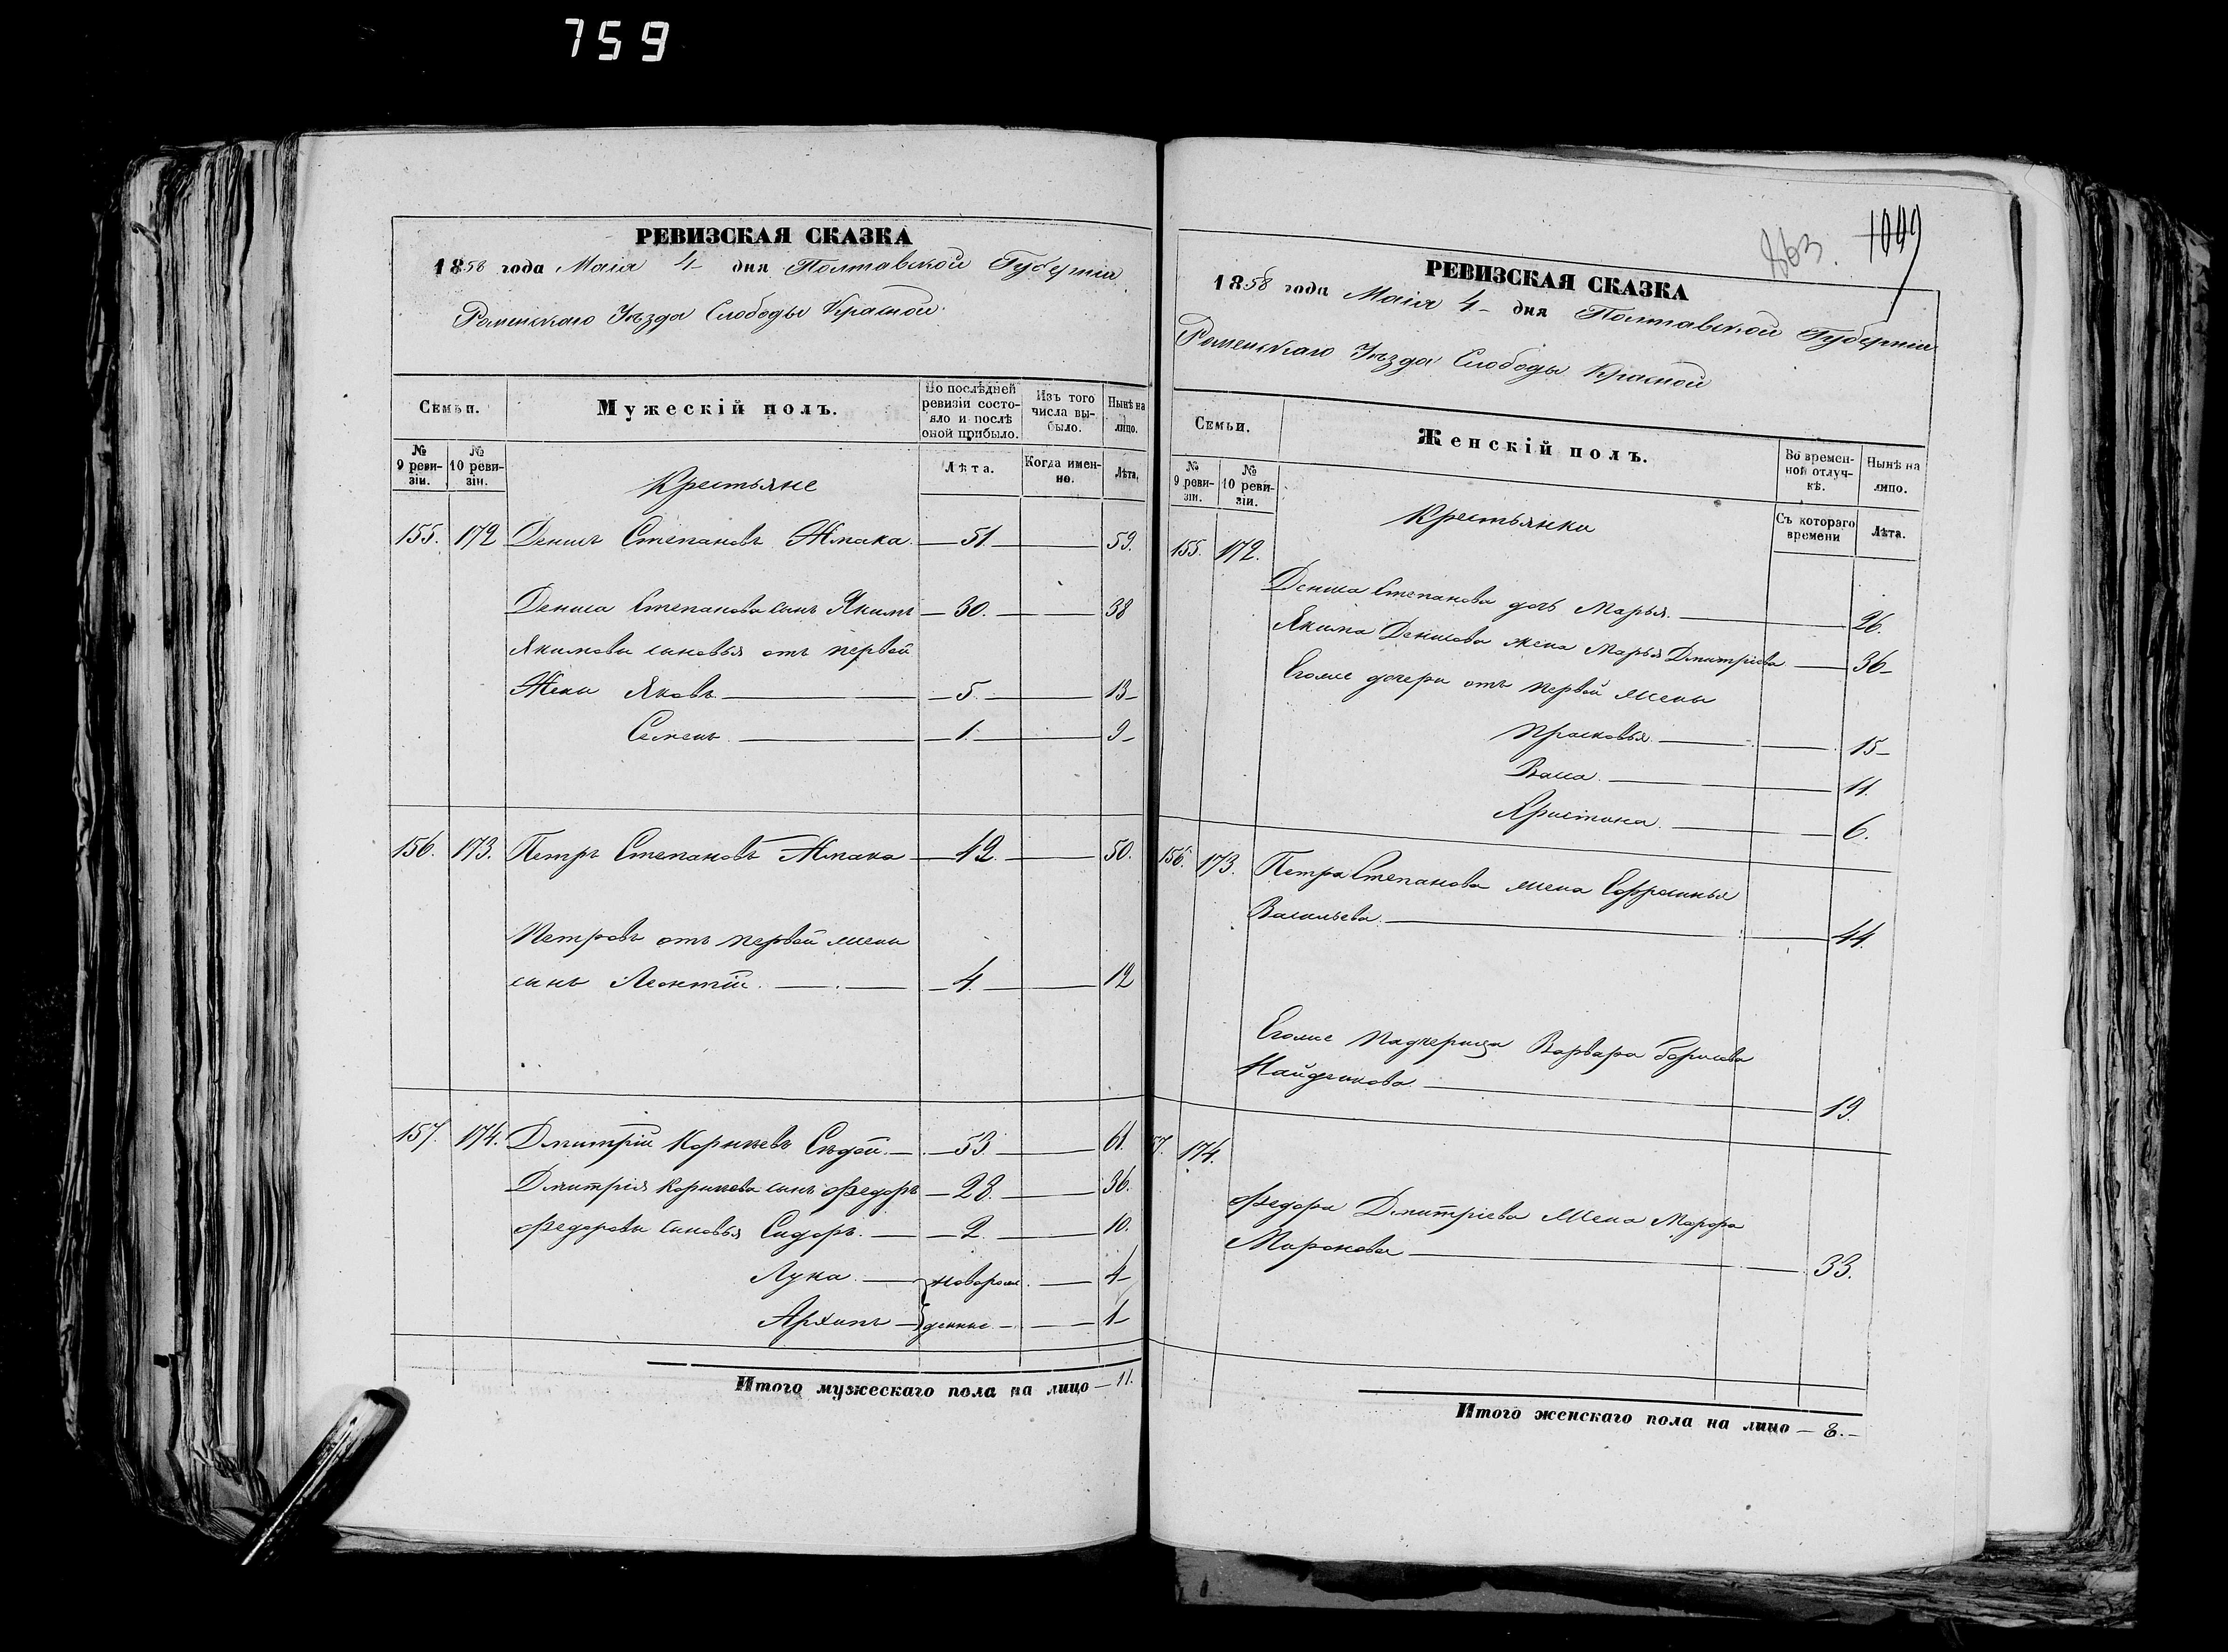 759
РЕВИЗСКАЯ СКАЗКА
1858 года Маія 4 дня Полтавской Губерніи
Роменскаго Уѣзда Слободы Красной
Семьи.
Мужескій полъ.
По послѣдней ревизіи состояло и послѣ оной прибыло.
Изъ того числа выбыло.
Нынѣ на лицо.
№ 9 ревизіи.
№ 10 ревизіи.
Крестьяне
Лѣта.
Когда именно.
Лѣта.
155. 172 Денисъ Степановъ 51. 59.
Дениса Степанова сынъ Якимъ 30. 38
Якимовы сыновья отъ первой
жены Яковъ 5. 13
Семенъ 1. 9
156. 173. Петръ Степановъ 42. 50.
Петровъ отъ первой жены
сынъ Леонтій 4. 12
157. 174. Дмитрій Корнѣевъ Сѣдой 53 61.
Дмитрія Корнѣева сынъ Федоръ 28. 36.
Федоровы сыновья Сидоръ 2. 10.
Лука новорож 4
Архипъ денные 1
Итого мужескаго пола на лицо 11.
863. 1009
РЕВИЗСКАЯ СКАЗКА
1858 года Маія 4 дня Полтавской Губерніи
Роменскаго Уѣзда Слободы Красной
Семьи.
Женскій полъ.
Во временной отлучкѣ.
Нынѣ на лицо.
№ 9 ревизіи.
№ 10 ревизіи.
Крестьянки
Съ котораго времени
Лѣта.
155. 172.
Дениса Степанова дочь Марья. 26.
Якима Денисова жена Марья Дмитріева 36
Егоже дочери отъ первой жены
Прасковья 15
Васса 11.
Христина 6.
156. 173. Петра Степанова жена Ефросинья
Васильева. 44.
Егоже падчерица Варвара Борисова
19.
57. 174.
Федора Дмитріева жена Марфа
Миронова 33.
Итого женскаго пола на лицо 8.